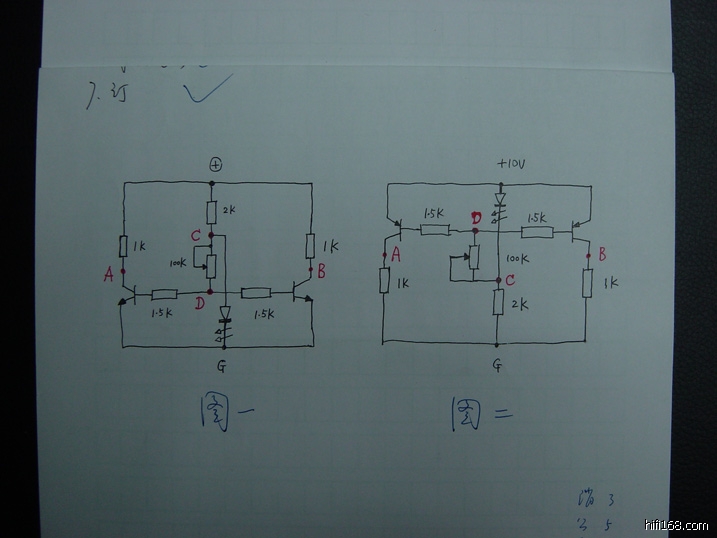 7.订
⊕ +10V
2K 1.5K D 1.5K
C
1K 1K A B
100K 100K
A B C
1K 1K
D 2K
1.5K 1.5K
G G
图一 图二
3
5
hifi168.com